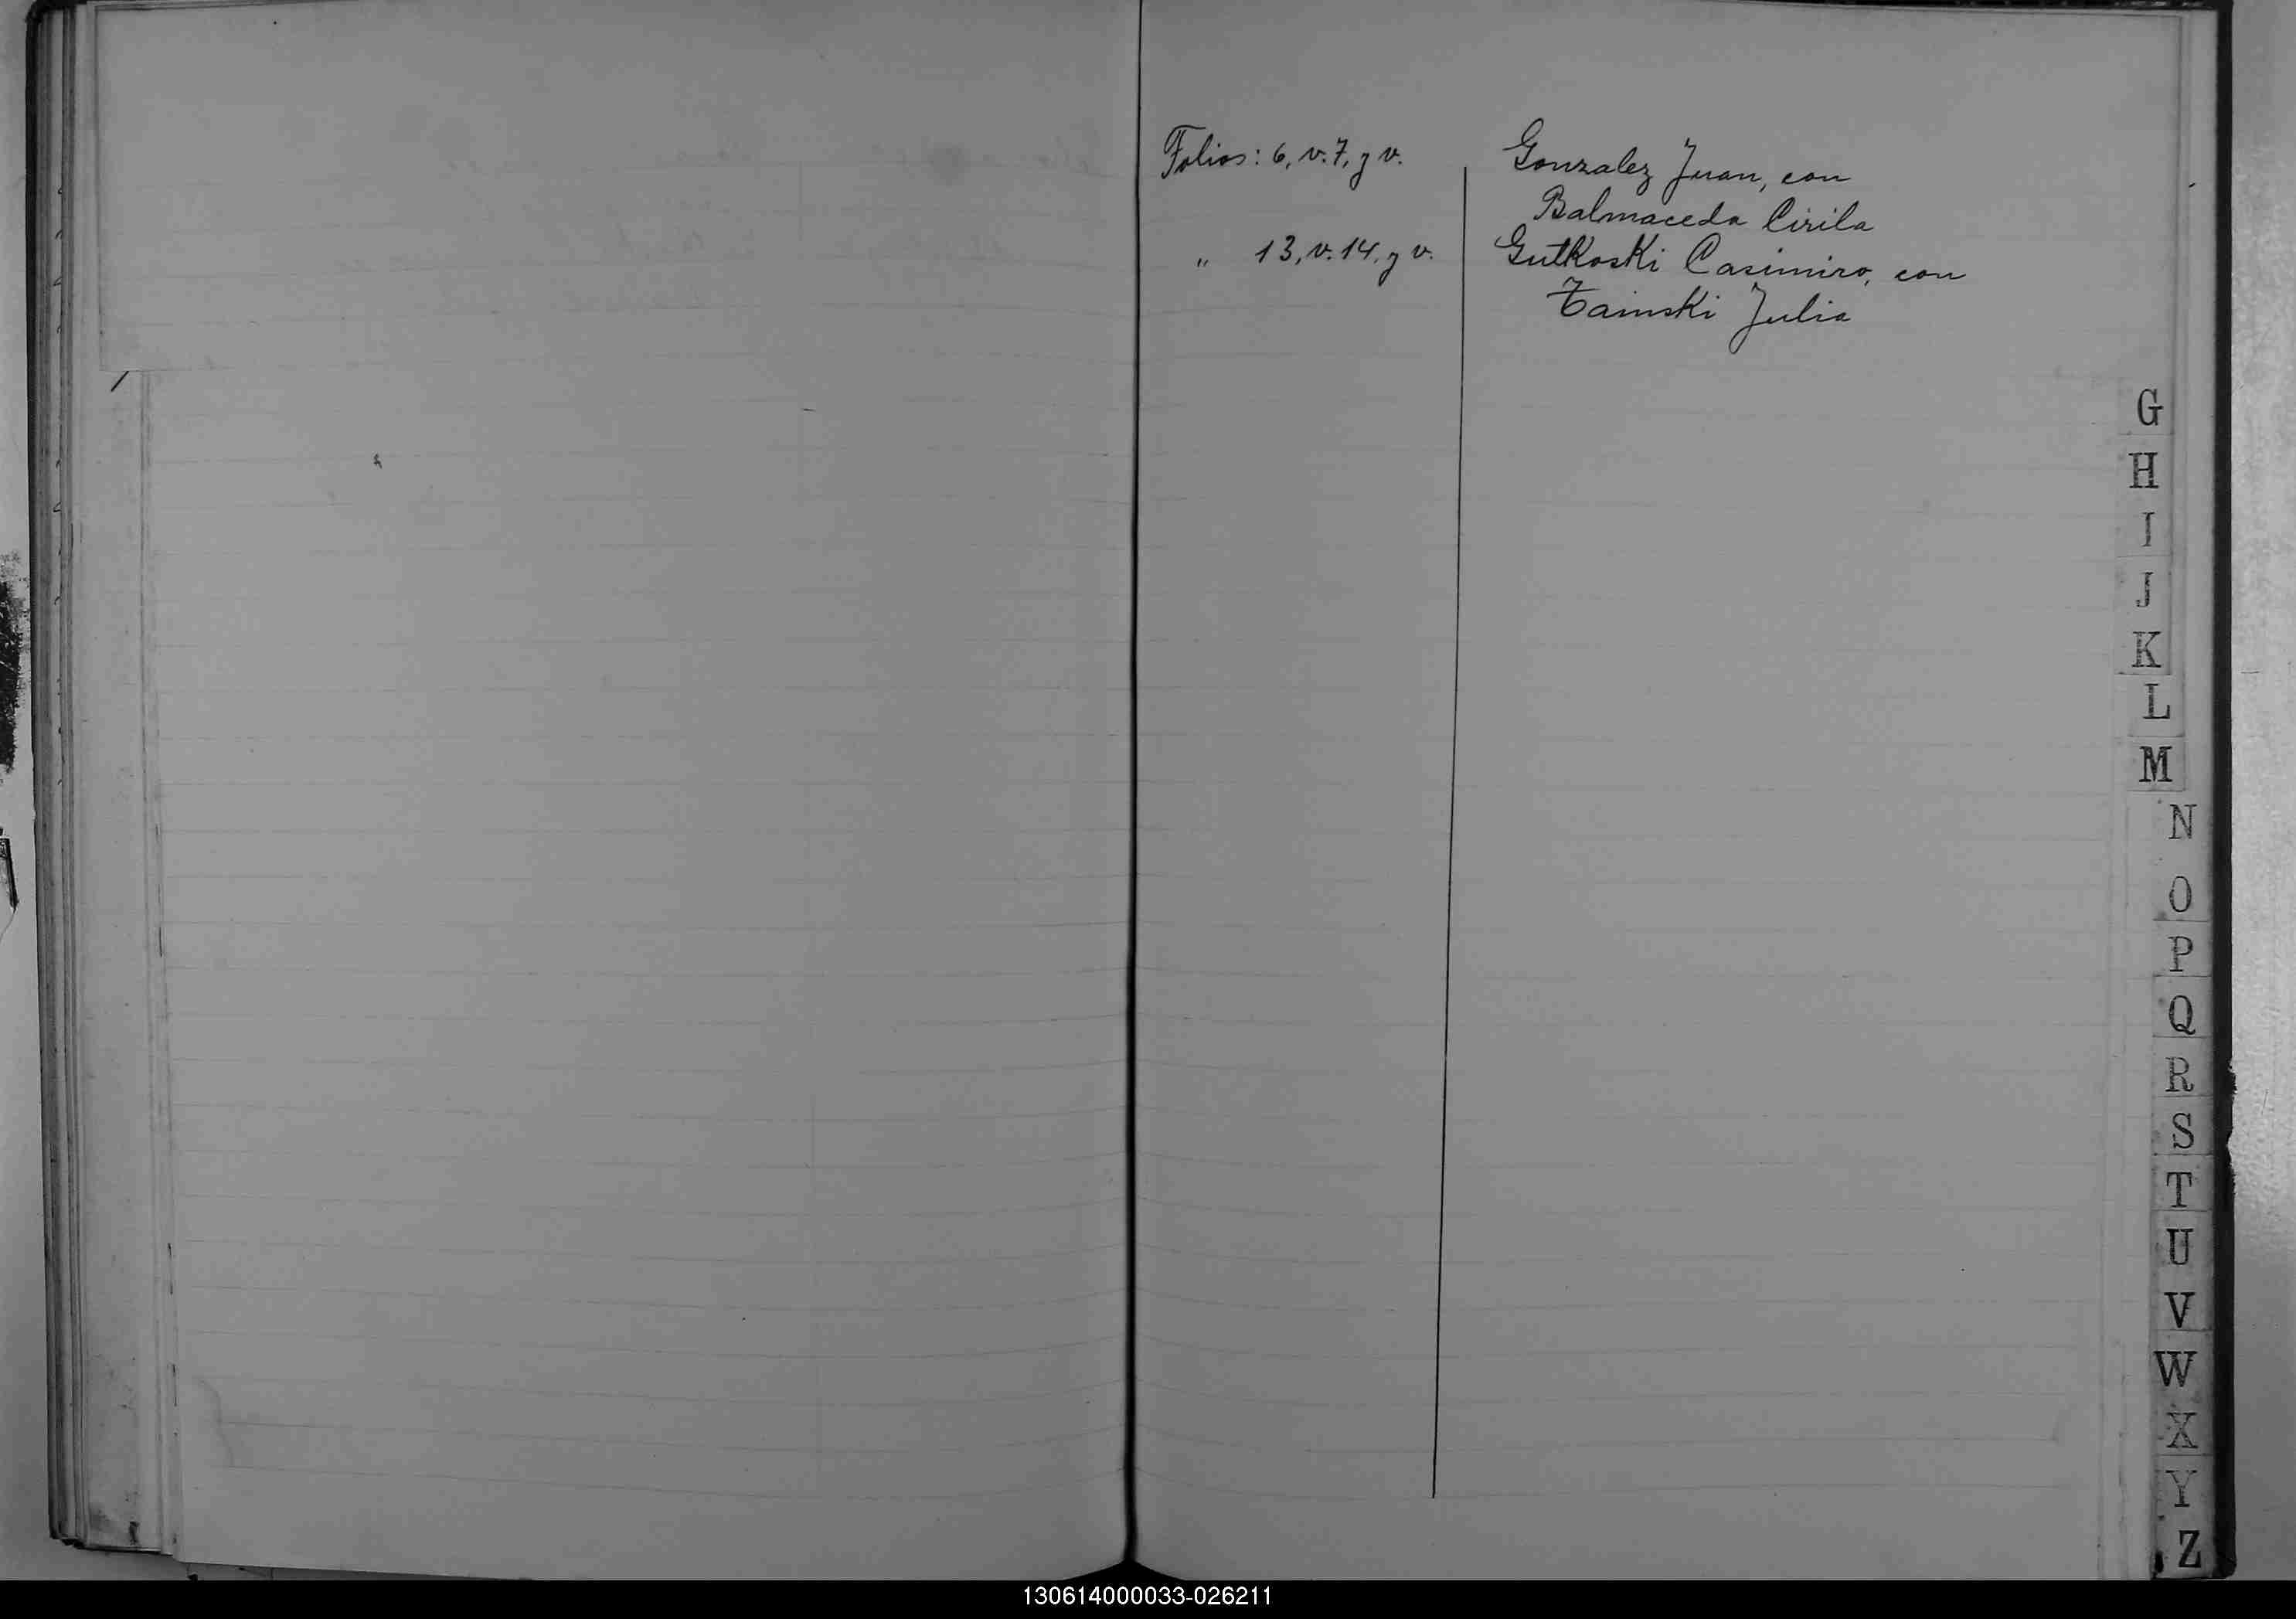 Folios: 6, v. 7, y v. Gonzalez Juan, con
Balmaceda Cirila
" 13, v. 14, y v. Gutkoski Casimiro, con
Julia
G
H
I
J
K
L
M
N
O
P
Q
R
S
T
U
V
W
X
Y
Z
130614000033-026211